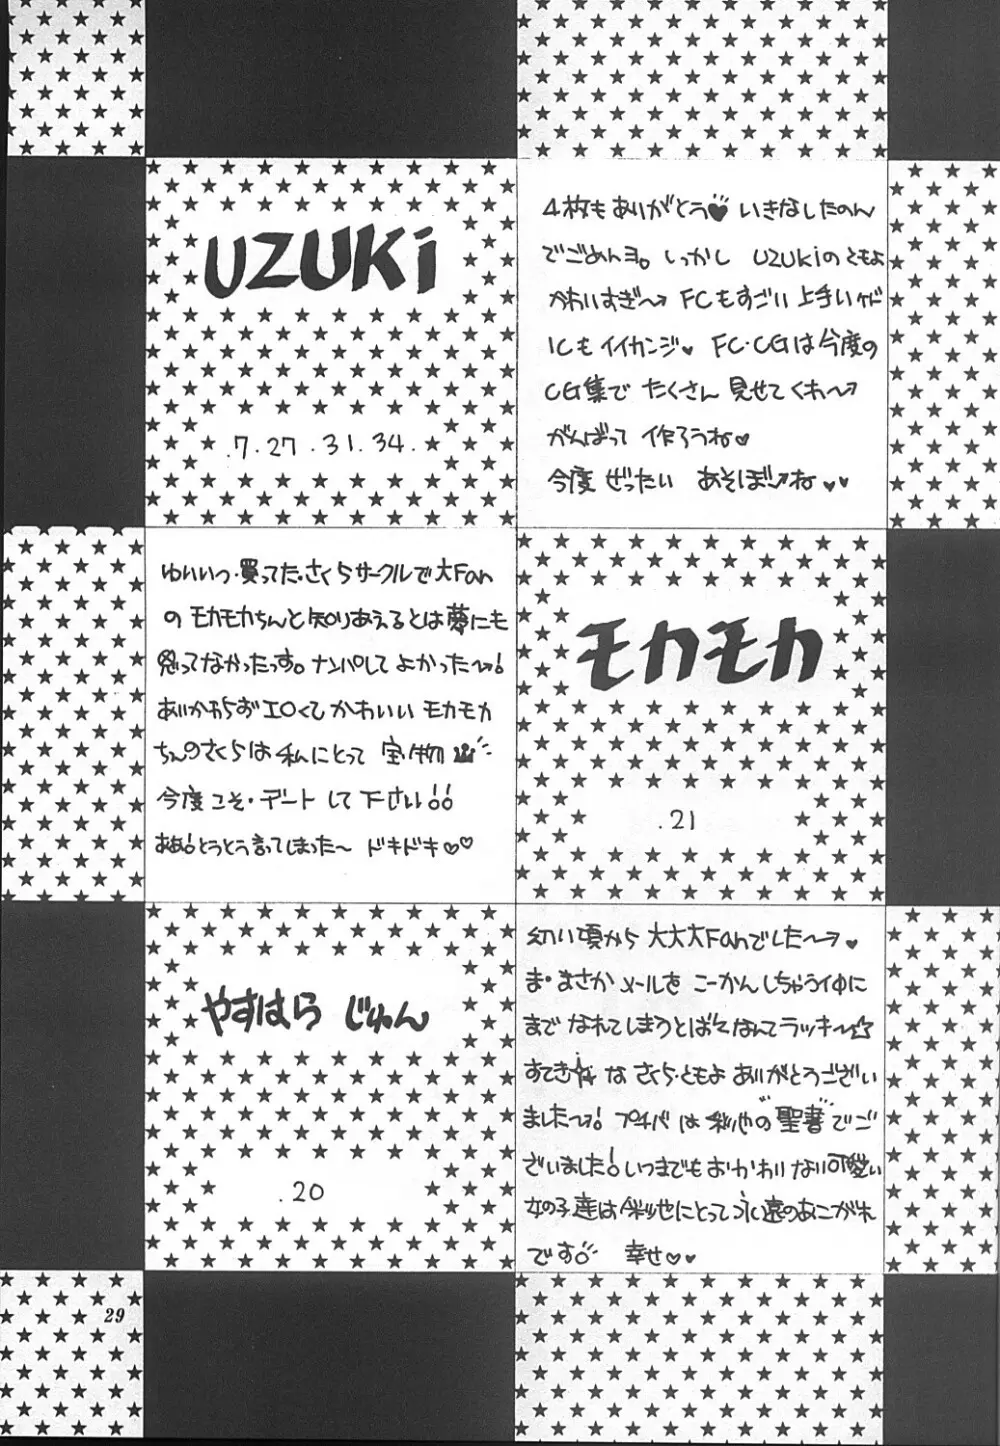 UZUKi
.7.27.31.34.
4枚もありがとう♥ いきなしたのん
でごめんヨ。しっかし UZUKiのともよ
かわいすぎ〜→ FCもすごい上手いケド
ICもイイカンジ♥ FC・CGは今度の
CG集で たくさん 見せてくれ〜→
がんばって 作ろうね♥
今度 ぜったい あそぼ→ね♥♥
ゆいいつ・買ってた・さくらサークルで大Fan
の モカモカちんと知りあえるとは夢にも
思ってなかったっす。ナンパして よかった〜→!
あいかわらず エロくて かわいい モカモカ
ちんのさくらは 私にとって 宝物
今度こそ・デート して 下さい!!
ああ!とうとう言ってしまった〜 ドキドキ♡♡
モカモカ
.21
やすはら じゅん
.20
幼い頃から 大大大Fanでした〜→♥
ま・まさか メールを こーかん しちゃうイ中に
までなれてしまうとは"!なんてラッキ〜☆
すてき☆な さくら・ともよ ありがとうござい
ました〜→! プチバは 彩也の"聖書"でご
ざいました!いつまでもおかわりない可愛い
女の子達は 彩也にとって 永遠のあこがれ
です。 幸せ♥♥
29